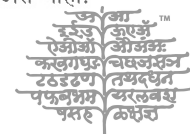 अ आ TM
इईउऊएॲ
ऐओऑऔअंअः
कखगघङचछजझञ
टठडढणतथदधन
पफबभमयरलवश
षसहळक्षज्ञ